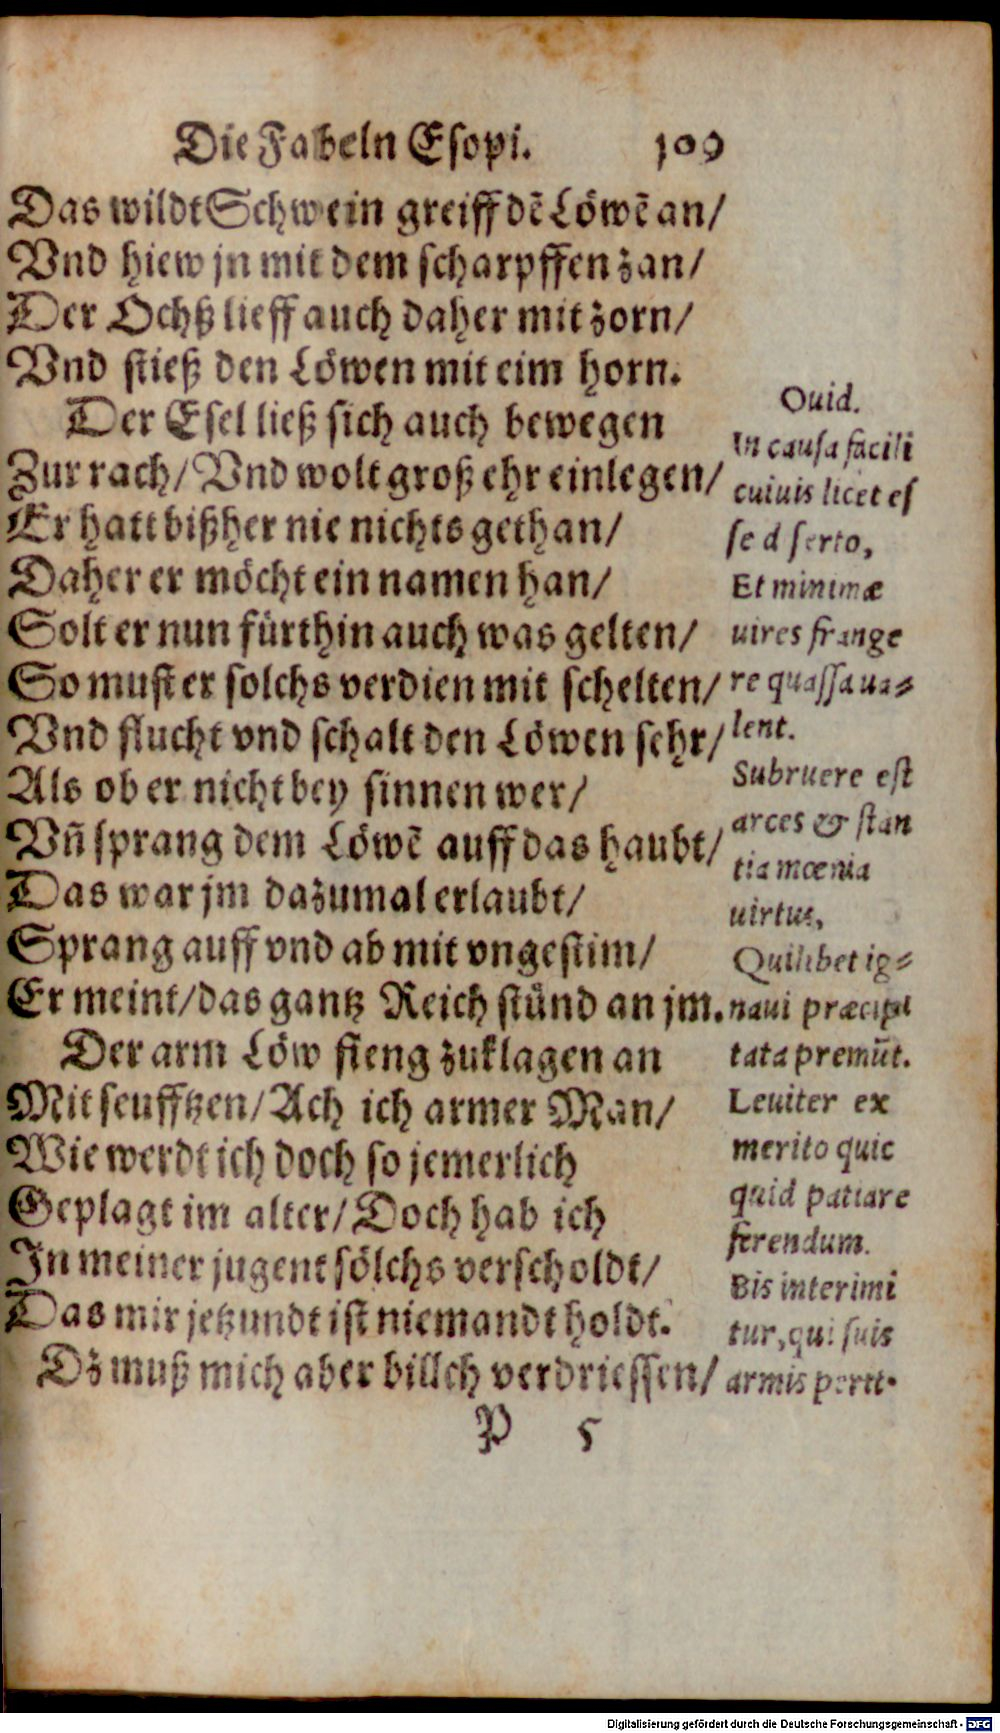 Die Fabeln Esopi. 109
Das wildt Schwein greiff dẽ Löwẽ an/
Vnd hiew jn mit dem scharpffen zan/
Der Ochß lieff auch daher mit zorn/
Vnd stieß den Löwen mit eim horn.
Der Esel ließ sich auch bewegen
Zur rach/ Vnd wolt groß ehr einlegen/
Er hatt bißher nie nichts gethan/
Daher er möcht ein namen han/
Solt er nun fürthin auch was gelten/
So must er solchs verdien mit schelten/
Vnd flucht vnd schalt den Löwen sehr/
Als ob er nicht bey sinnen wer/
Vñ sprang dem Löwẽ auff das haubt/
Das war jm dazumal erlaubt/
Sprang auff vnd ab mit vngestim/
Er meint/das gantz Reich stünd an jm.
Der arm Löw fieng zuklagen an
Mit seufftzen/Ach ich armer Man/
Wie werdt ich doch so jemerlich
Geplagt im alter/Doch hab ich
In meiner jugent sölchs verscholdt/
Das mir jetzundt ist niemandt holdt.
Dz muß mich aber billch verdriessen/
Ouid.
In causa facili
cuiuis licet es
se d serto,
Et minimæ
uires frange
re quassa ua⸗
lent.
Subruere est
arces & stan
tia mœnia
uirtus,
Quilibet ig⸗
naui præcipi
tata premũt.
Leuiter ex
merito quic
quid patiare
ferendum.
Bis interimi
tur, qui suis
armis perit.
P 5
Digitalisierung gefördert durch die Deutsche Forschungsgemeinschaft - DFG